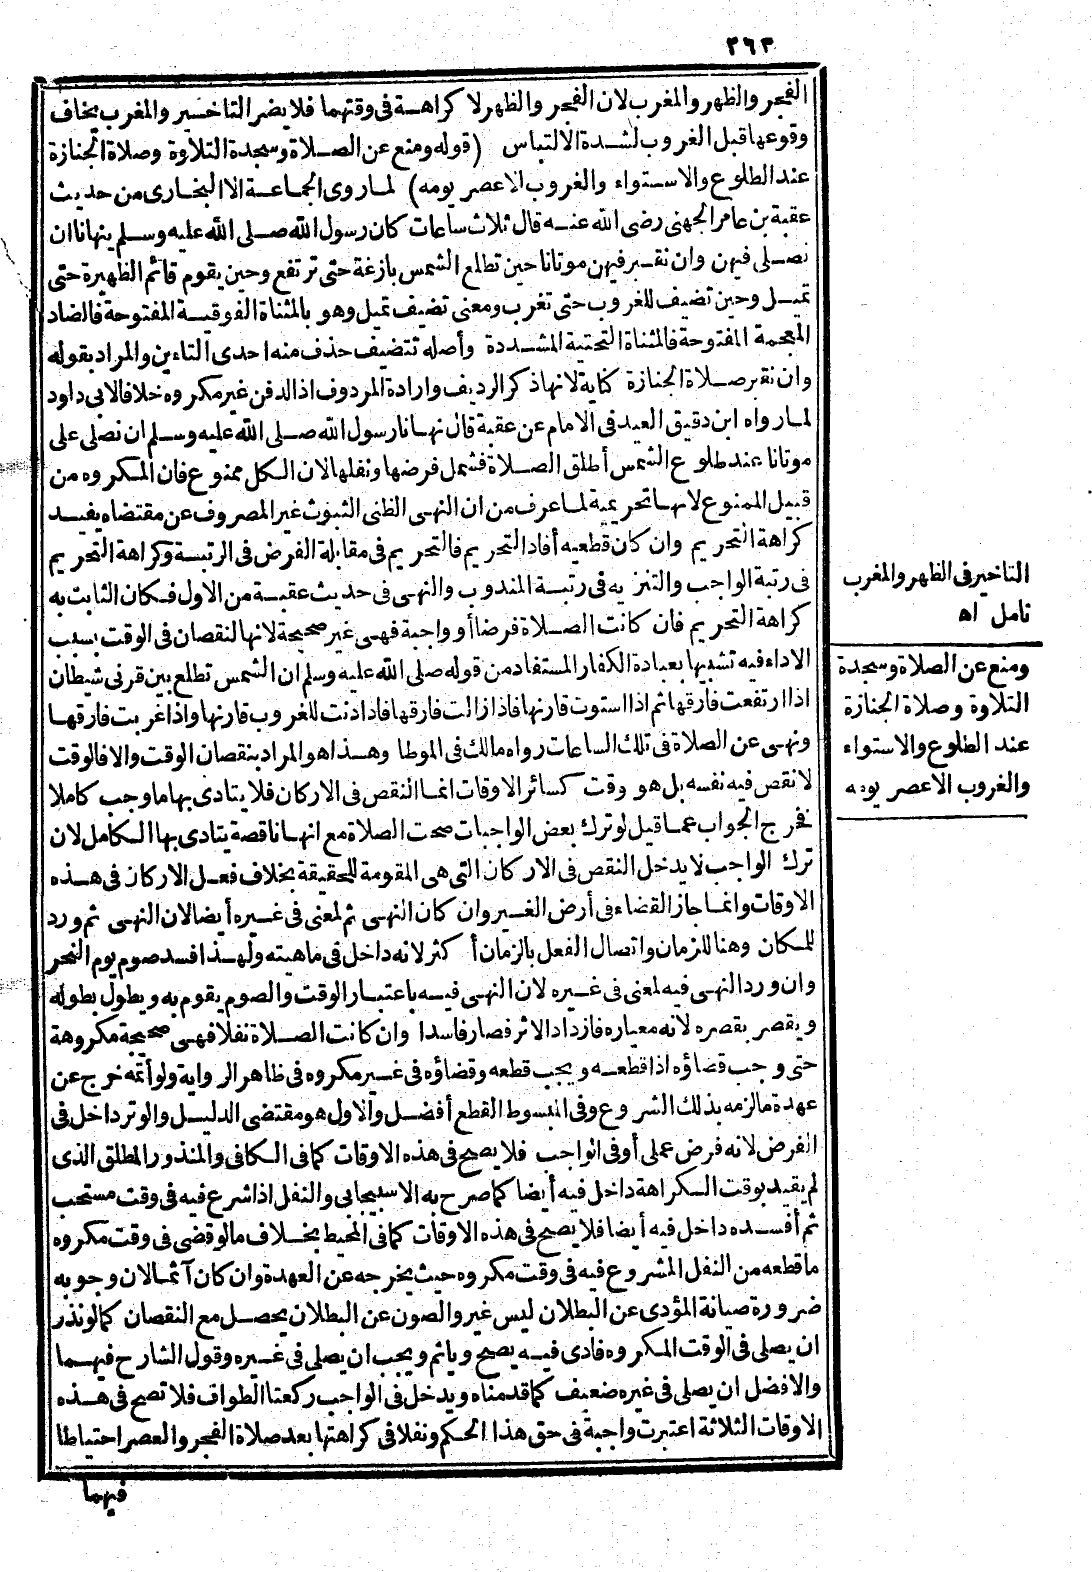 ٢٦٣
الفجر والظهر والمغرب لان الفجر والظهر لا كراهة فى وقتهما فلا يضر التاخير والمغرب يخاف
وقوعها قبل الغروب لشدة الالتباس (قوله ومنع عن الصلاة وسجدة التلاوة وصلاة الجنازة
عند الطلوع والاستواء والغروب الاعصر يومه) لما روى الجماعة الا البخارى من حديث
عقبة بن عامر الجهنى رضى الله عنه قال ثلاث ساعات كان رسول الله صلى الله عليه وسلم ينهانا ان
نصلى فيهن وان نقبر فيهن موتانا حين تطلع الشمس بازغة حتى ترتفع وحين يقوم قائم الظهيرة حتى
تميل وحين تضيف للغروب حتى تغرب ومعنى تضيف تميل وهو بالمثناة الفوقية المفتوحة فالضاد
المعجمة المفتوحة فالمثناة التحتية المشددة وأصله تتضيف حذف منه احدى التاءين والمراد بقوله
وان نقبر صلاة الجنازة كناية لانها ذكر الرديف وارادة المردوف اذ الدفن غير مكروه خلافا لابى داود
لما رواه ابن دقيق العيد فى الامام عن عقبة قال نهانا رسول الله صلى الله عليه وسلم ان نصلى على
موتانا عند طلوع الشمس أطلق الصلاة فشمل فرضها ونفلها لان الكل ممنوع فان المكروه من
قبيل الممنوع لانها تحريمية لما عرف من ان النهى الظنى الثبوت غير المصروف عن مقتضاه يفيد
كراهة التحريم وان كان قطعيه أفاد التحريم فالتحريم فى مقابلة الفرض فى الرتبة وكراهة التحريم
فى رتبة الواجب والتنزيه فى رتبة المندوب والنهى فى حديث عقبة من الاول فكان الثابت به
كراهة التحريم فان كانت الصلاة فرضا أو واجبة فهى غير صحيحة لانها لنقصان فى الوقت بسبب
الاداء فيه تشبيها بعبادة الكفار المستفاد من قوله صلى الله عليه وسلم ان الشمس تطلع بين قرنى شيطان
اذا ارتفعت فارقها ثم اذا استوت قارنها فاذا زالت فارقها فاذا دنت للغروب قارنها واذا غربت فارقها
ونهى عن الصلاة فى تلك الساعات رواه مالك فى الموطا وهذا هو المراد بنقصان الوقت والا فالوقت
لا نقص فيه نفسه بل هو وقت كسائر الاوقات انما النقص فى الاركان فلا يتادى بها ما وجب كاملا
فخرج الجواب عما قيل لو ترك بعض الواجبات صحت الصلاة مع انها ناقصة يتادى بها الكامل لان
ترك الواجب لا يدخل النقص فى الاركان التى هى المقومة للحقيقة بخلاف فعل الاركان فى هذه
الاوقات وانما جاز القضاء فى أرض الغير وان كان النهى ثم لمعنى فى غيره أيضا لان النهى ثم ورد
للمكان وهنا للزمان واتصال الفعل بالزمان أكثر لانه داخل فى ماهيته ولهذا فسد صوم يوم النحر
وان ورد النهى فيه لمعنى فى غيره لان النهى فيه باعتبار الوقت والصوم يقوم به ويطول بطوله
ويقصر بقصره لانه معياره فازداد الاثر فصار فاسدا وان كانت الصلاة نفلا فهى صحيحة مكروهة
حتى وجب قضاؤه اذا قطعه ويجب قطعه وقضاؤه فى غير مكروه فى ظاهر الرواية ولو أتمه خرج عن
عهدة ما لزمه بذلك الشروع وفى المبسوط القطع أفضل والاول هو مقتضى الدليل والوتر داخل فى
الفرض لانه فرض عملى أو فى الواجب فلا يصح فى هذه الاوقات كما فى الكافى والمنذور المطلق الذى
لم يقيد بوقت الكراهة داخل فيه أيضا كما صرح به الاسبيجابى والنفل اذا شرع فيه فى وقت مستحب
ثم أفسده داخل فيه أيضا فلا يصح فى هذه الاوقات كما فى المحيط بخلاف ما لو قضى فى وقت مكروه
ما قطعه من النفل المشروع فيه فى وقت مكروه حيث يخرجه عن العهدة وان كان آثما لان وجوبه
ضرورة صيانة المؤدى عن البطلان ليس غير والصون عن البطلان يحصل مع النقصان كما لو نذر
ان يصلى فى الوقت المكروه فادى فيه يصح وياثم ويجب ان يصلى فى غيره وقول الشارح فيهما
والافضل ان يصلى فى غيره ضعيف كما قدمناه ويدخل فى الواجب ركعتا الطواف فلا تصح فى هذه
الاوقات الثلاثة اعتبرت واجبة فى حق هذا الحكم ونفلا فى كراهتها بعد صلاة الفجر والعصر احتياطا
فيهما
التاخير فى الظهر والمغرب
تامل اه
ومنع عن الصلاة وسجدة
التلاوة وصلاة الجنازة
عند الطلوع والاستواء
والغروب الاعصر يومه